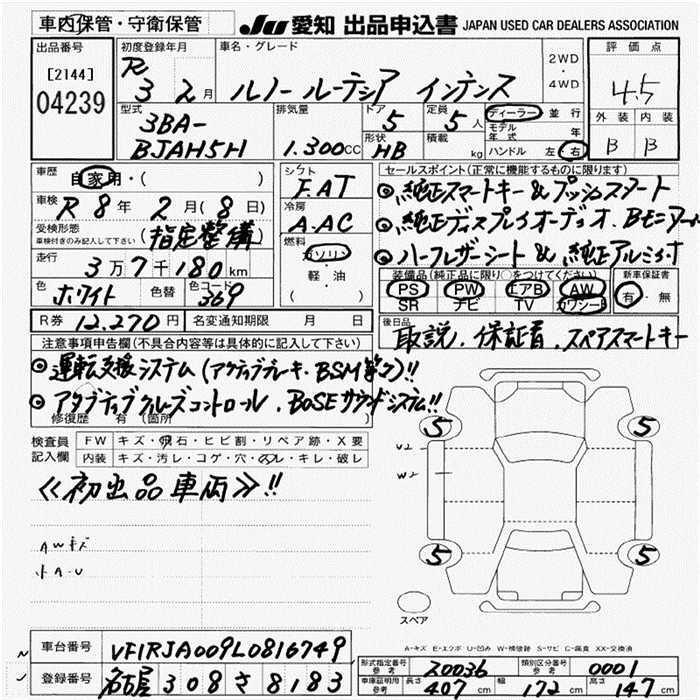 車内保管・守衛保管 JU 愛知 出品申込書 JAPAN USED CAR DEALERS ASSOCIATION
出品番号 初度登録年月 車名・グレード 2WD・4WD 評価点
[2144] R
04239 3 2月 ルノー ルーテシア インテンス 4.5
型式 排気量 ドア 定員 ディーラー 並行 外装 内装
3BA- 5 5人 モデル年式 年
BJAH5H 1.300cc 形状 HB 積載 kg ハンドル 左 右 B B
車歴 自家用・( ) シフト F.AT セールスポイント(正常に機能するものに限ります)
車検 R8年2月(8日) 冷房 A.AC ◎純正スマートキー&プッシュスタート
受検形態 車検付きのみ記入して下さい (指定整備) ◎純正ディスプレイオーディオ.Bモニター
走行 3万7千180km 燃料 ガソリン・軽・油 ◎ハーフレザーシート&純正アルミ
色 ホワイト 色替 色コード 369 装備品(純正品に限り○をつけてください) 新車保証書
PS PW エアB AW 有・無
SR ナビ TV カワシート
R券 12.270円 名変通知期限 月 日 後日品 取説.保証書.スペアスマートキー
注意事項申告欄(不具合内容等は具体的に記入して下さい)
◎運転支援システム(アクティブブレーキ.BSM等々)!!
◎アクティブクルーズコントロール.BOSEサウンドシステム!!
修復歴 有(箇所
検査員記入欄 FW キズ・飛石・ヒビ割・リペア跡・X要
内装 キズ・汚レ・コゲ・穴・スレ・キレ・破レ
≪初出品車両≫!!
AWキズ
小A・U
5 5
U2
W2
5 5
スペア
A-キズ E-エクボ U-凹み W-補修跡 S-サビ C-腐食 XX-交換済
車台番号 VF1RJA009L0816749
登録番号 名古屋 308 さ 8183
形式指定番号 参考 20036 類別区分番号 参考 0001
車庫証明用 参考 長さ 407cm 幅 172cm 高さ 147cm